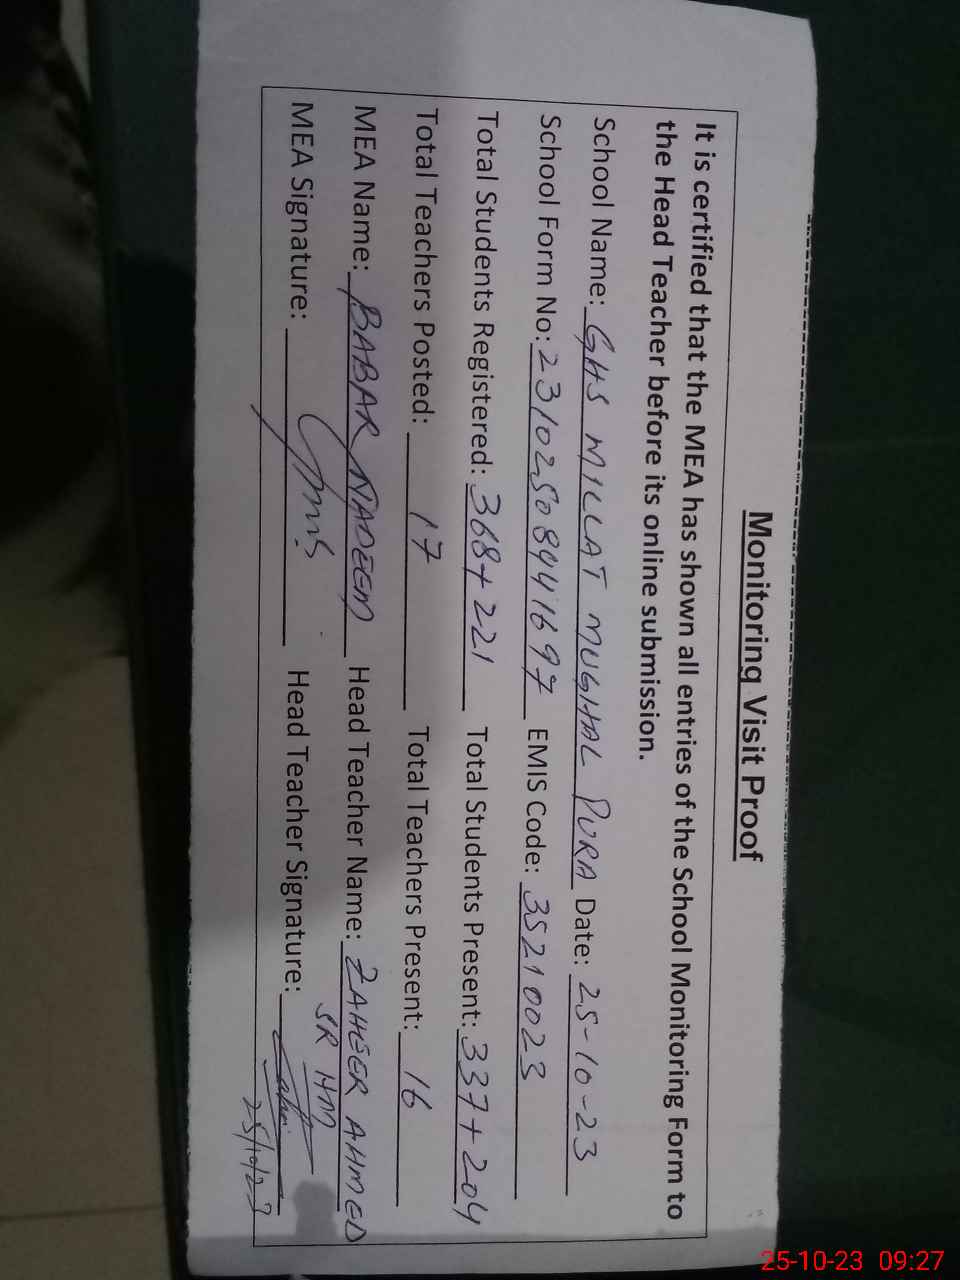 Monitoring Visit Proof
It is certified that the MEA has shown all entries of the School Monitoring Form to
the Head Teacher before its online submission.
School Name: GHS MILLAT MUGHAL PURA Date: 25-10-23
School Form No: 231025089441697 EMIS Code: 35210023
Total Students Registered: 368+221 Total Students Present: 337+204
Total Teachers Posted: 17 Total Teachers Present: 16
MEA Name: BABAR NADEEM Head Teacher Name: ZAHEER AHMED
SR HM
MEA Signature: Head Teacher Signature:
25/10/23
25-10-23 09:27